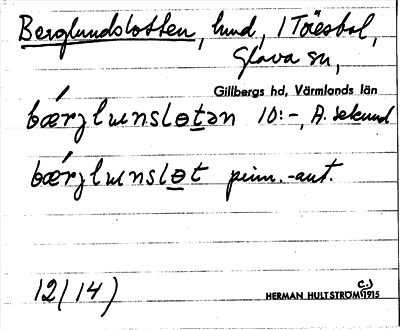 Berglundslotten, lund, 1 Töresbol,
Glava sn,
Gillbergs hd, Värmlands län
bǽrglɯnslɵtən 10:-, A. sekund
bǽrglɯnslɵt prim.-aut.
12(14)
HERMAN HULTSTRÖM 1915